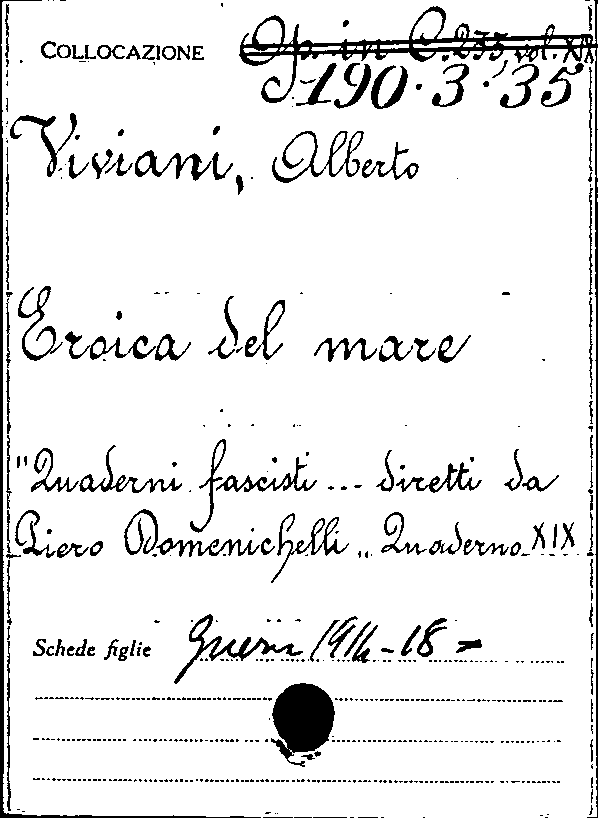 COLLOCAZIONE Op. in C. 233, vol. XIX
190.3.35
Viviani, Alberto
Eroica del mare
"Quaderni fascisti ... diretti da
Piero Domenichelli„ Quaderno XIX
Schede figlie Guerra 1914-18 =